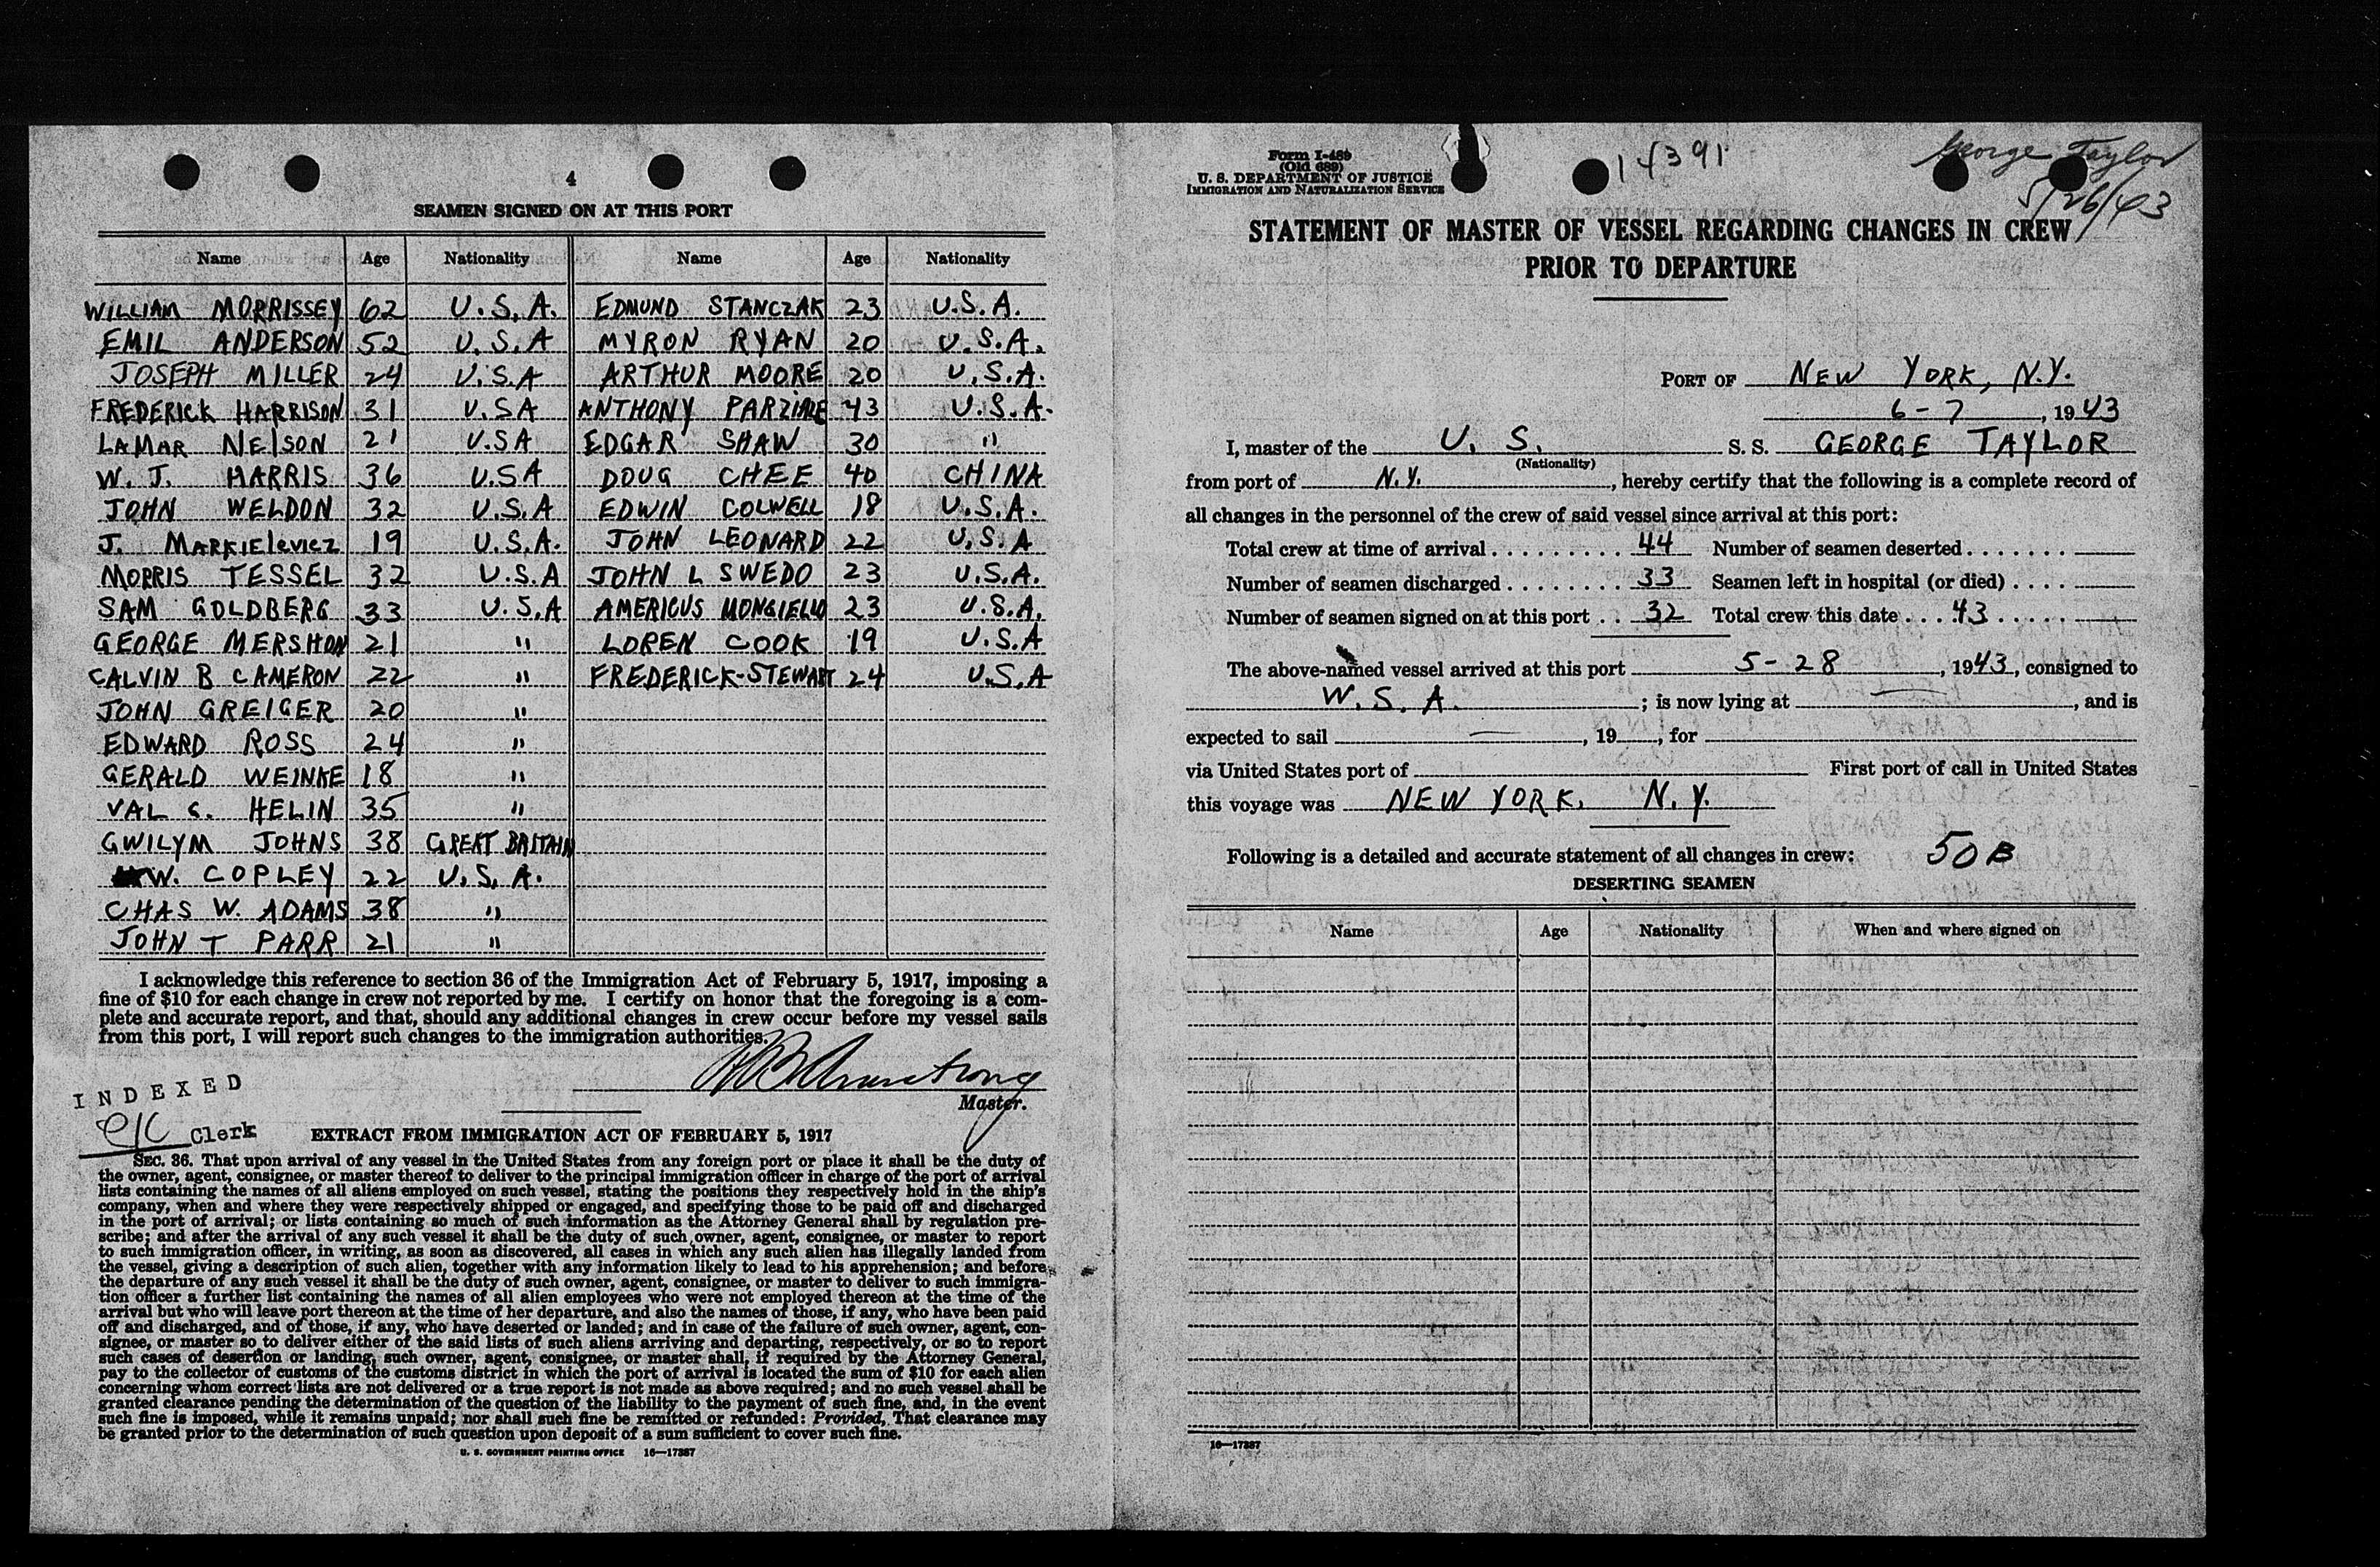 4
SEAMEN SIGNED ON AT THIS PORT
Name Age Nationality Name Age Nationality
WILLIAM MORRISSEY 62 U.S.A. EDMUND STANCZAK 23 U.S.A.
EMIL ANDERSON 52 U.S.A MYRON RYAN 20 U.S.A.
JOSEPH MILLER 24 U.S.A ARTHUR MOORE 20 U.S.A.
FREDERICK HARRISON 31 U.SA ANTHONY PARZIALE 43 U.S.A.
LAMAR NELSON 21 U.SA EDGAR SHAW 30 "
W. J. HARRIS 36 U.SA DOUG CHEE 40 CHINA
JOHN WELDON 32 U.S.A EDWIN COLWELL 18 U.S.A.
J. MARKIELEVICZ 19 U.S.A. JOHN LEONARD 22 U.S.A
MORRIS TESSEL 32 U.S.A JOHN L SWEDO 23 U.S.A.
SAM GOLDBERG 33 U.S.A AMERICUS MONGIELLO 23 U.S.A.
GEORGE MERSHON 21 " LOREN COOK 19 U.S.A
CALVIN B CAMERON 22 " FREDERICK-STEWART 24 U.S.A
JOHN GREIGER 20 "
EDWARD ROSS 24 "
GERALD WEINKE 18 "
VAL G. HELIN 35 "
GWILYM JOHNS 38 GREAT BRITAIN
W. COPLEY 22 U.S.A.
CHAS W. ADAMS 38 "
JOHN T PARR 21 "
I acknowledge this reference to section 36 of the Immigration Act of February 5, 1917, imposing a
fine of $10 for each change in crew not reported by me. I certify on honor that the foregoing is a com-
plete and accurate report, and that, should any additional changes in crew occur before my vessel sails
from this port, I will report such changes to the immigration authorities.
Armstrong
Master.
INDEXED
Clerk
EXTRACT FROM IMMIGRATION ACT OF FEBRUARY 5, 1917
SEC. 36. That upon arrival of any vessel in the United States from any foreign port or place it shall be the duty of
the owner, agent, consignee, or master thereof to deliver to the principal immigration officer in charge of the port of arrival
lists containing the names of all aliens employed on such vessel, stating the positions they respectively hold in the ship's
company, when and where they were respectively shipped or engaged, and specifying those to be paid off and discharged
in the port of arrival; or lists containing so much of such information as the Attorney General shall by regulation pre-
scribe; and after the arrival of any such vessel it shall be the duty of such owner, agent, consignee, or master to report
to such immigration officer, in writing, as soon as discovered, all cases in which any such alien has illegally landed from
the vessel, giving a description of such alien, together with any information likely to lead to his apprehension; and before
the departure of any such vessel it shall be the duty of such owner, agent, consignee, or master to deliver to such immigra-
tion officer a further list containing the names of all alien employees who were not employed thereon at the time of the
arrival but who will leave port thereon at the time of her departure, and also the names of those, if any, who have been paid
off and discharged, and of those, if any, who have deserted or landed; and in case of the failure of such owner, agent, con-
signee, or master so to deliver either of the said lists of such aliens arriving and departing, respectively, or so to report
such cases of desertion or landing, such owner, agent, consignee, or master shall, if required by the Attorney General,
pay to the collector of customs of the customs district in which the port of arrival is located the sum of $10 for each alien
concerning whom correct lists are not delivered or a true report is not made as above required; and no such vessel shall be
granted clearance pending the determination of the question of the liability to the payment of such fine, and, in the event
such fine is imposed, while it remains unpaid; nor shall such fine be remitted or refunded: Provided, That clearance may
be granted prior to the determination of such question upon deposit of a sum sufficient to cover such fine.
U. S. GOVERNMENT PRINTING OFFICE 16—17387
Form I-489
(Old 689)
U. S. DEPARTMENT OF JUSTICE
IMMIGRATION AND NATURALIZATION SERVICE
14391
George Taylor
5/26/43
STATEMENT OF MASTER OF VESSEL REGARDING CHANGES IN CREW
PRIOR TO DEPARTURE
PORT OF NEW YORK, N.Y.
6-7, 1943
I, master of the U. S. S. S. GEORGE TAYLOR
(Nationality)
from port of N.Y., hereby certify that the following is a complete record of
all changes in the personnel of the crew of said vessel since arrival at this port:
Total crew at time of arrival 44 Number of seamen deserted
Number of seamen discharged 33 Seamen left in hospital (or died)
Number of seamen signed on at this port 32 Total crew this date 43
The above-named vessel arrived at this port 5-28, 1943, consigned to
W. S. A. ; is now lying at —, and is
expected to sail —, 19 , for
via United States port of First port of call in United States
this voyage was NEW YORK, N.Y.
Following is a detailed and accurate statement of all changes in crew: 50B
DESERTING SEAMEN
Name Age Nationality When and where signed on
16—17387